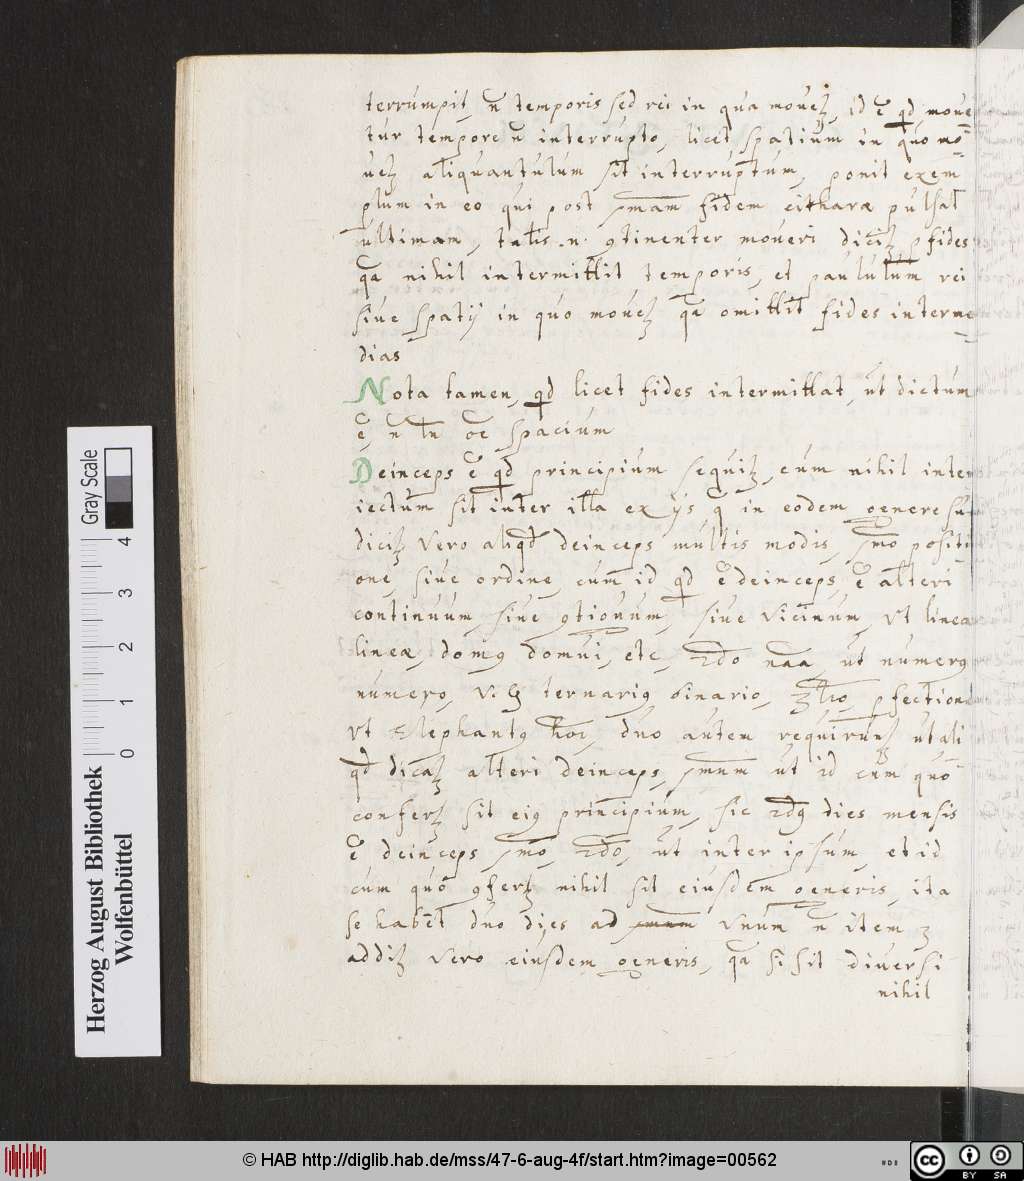 terrumpit, ñ temporis sed rei in qua mouetʒ, id ẽ qđ moue
tur tempore ñ interrupto, licet spatium in quo mo=
uetʒ aliquantulum sit interruptum, ponit exem
plum in eo qui post pmam fidem citharæ pulsat
ultimam, talis .n. ꝯtinenter moueri dicitʒ p fides
qa nihil intermittit temporis, et paululum rei
siue spatij in quo mouetʒ qa omittit fides interme=
dias
Nota tamen, qđ licet fides intermittat, ut dictum
ẽ, ñ tñ õe spacium
Deinceps ẽ qđ principium sequitʒ, cum nihil inter
iectum sit inter illa ex ijs q in eodem genere su
dicitʒ vero aliqđ deinceps multis modis, pmo positi
one, siue ordine, cum id qđ ẽ deinceps, ẽ alteri
continuum, siue ꝯtiguum, siue vicinum, vt linea
lineæ, domꝰ domui, etc, 2do naa ut numerꝰ
numero, v.g ternariꝰ binario, 3tio, pfectione
vt Elephantꝰ duo autem requiruntʒ ut ali
qđ dicatʒ alteri deinceps, pmum ut id cum quo
confertʒ sit eiꝰ principium, sic 2dꝰ dies mensis
ẽ deinceps pmo, 2do, ut inter ipsum, et id
cum quo ꝯfertʒ nihil sit eiusdem generis, ita
se habet duo dies ad vnum ñ item 3
additʒ vero eiusdem generis, qa si sit diuersi
nihil
Herzog August Bibliothek
Wolfenbüttel
0 1 2 3 4
Gray Scale
© HAB http://diglib.hab.de/mss/47-6-aug-4f/start.htm?image=00562
cc BY SA